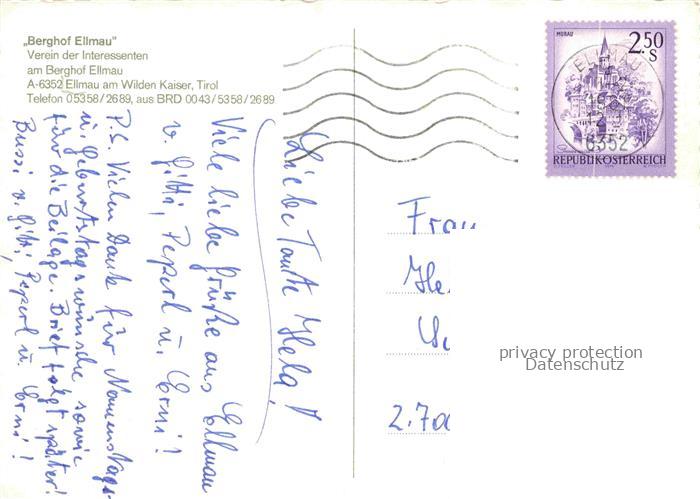 „Berghof Ellmau"
Verein der Interessenten
am Berghof Ellmau
A-6352 Ellmau am Wilden Kaiser, Tirol
Telefon 05358/2689, aus BRD 0043/5358/2689
Liebe Tante Hela!
Viele liebe Grüße aus Ellmau
v. Gitti, Peperl u. Erni!
P.S. Vielen Dank für Namenstags-
u. Geburtstagswünsche sowie
für die Beilage. Brief folgt später!
Bussi v. Gitti, Peperl u. Erni!
MURAU
2.50
S
REPUBLIK ÖSTERREICH
ELLMAU
6352
Frau
He
2.70
privacy protection
Datenschutz